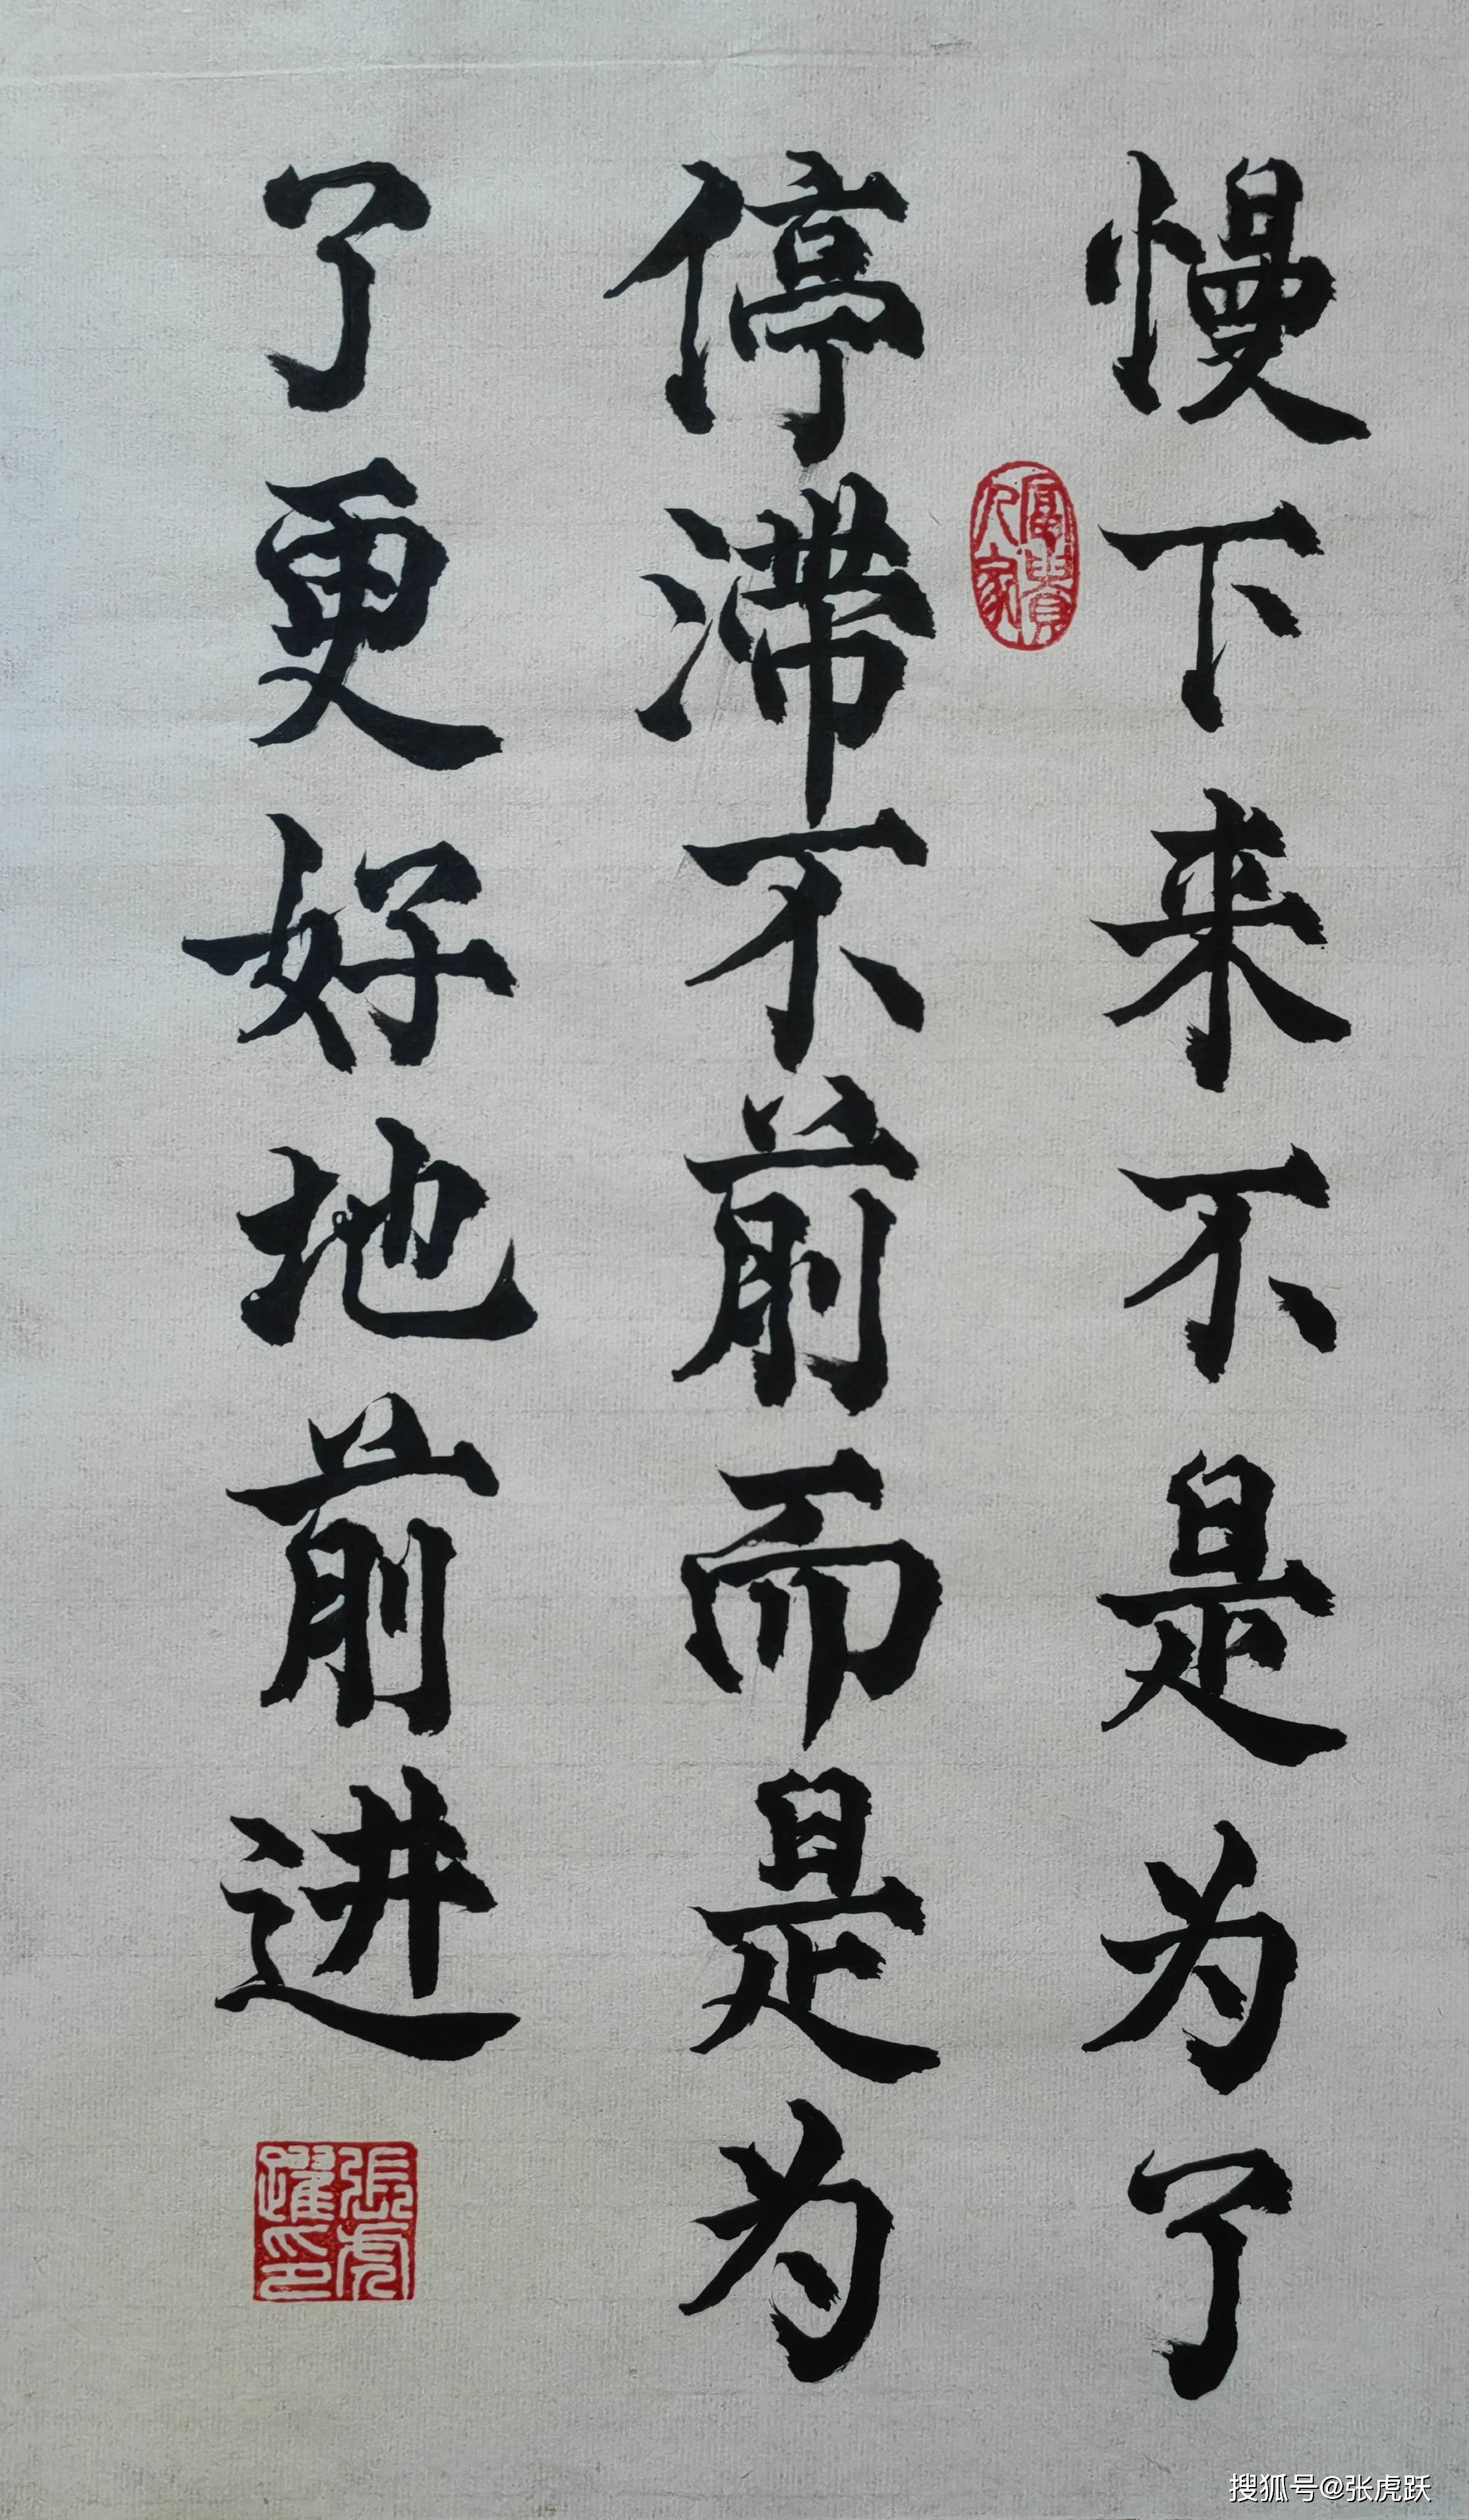 慢下来不是为了
停滞不前而是为
了更好地前进
富貴人家
張虎躍印
搜狐号@张虎跃